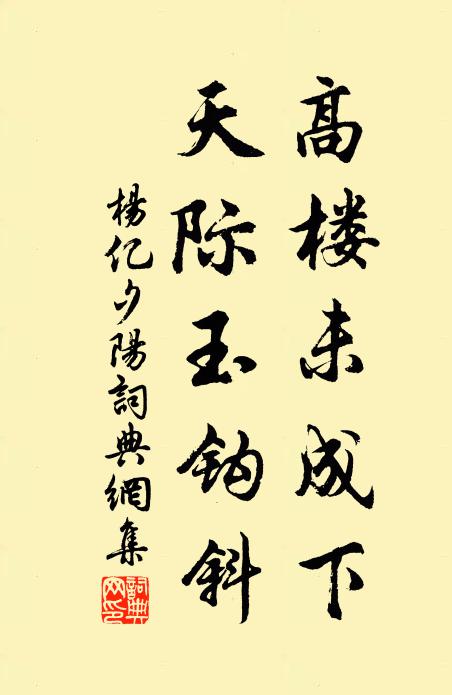 高楼未成下
天际玉钩斜
楊亿夕陽詞典網集
詞典
网印